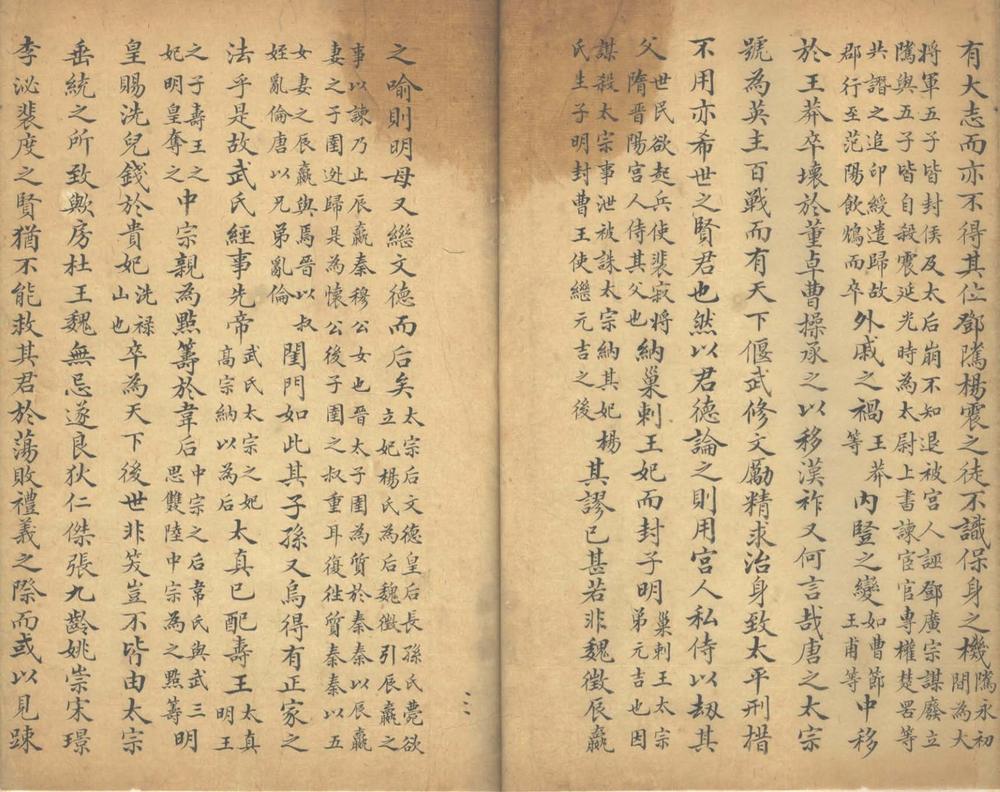 有大志而亦不得其位鄧騭楊震之徒不識保身之機騭永初間為大
將軍五子皆封侯及太后崩不知退被宮人誣鄧廣宗謀廢立
騭與五子皆自殺震延光時為太尉上書諫宦官專權楚罟等
共譖之追印綬遣歸故郡行至茫陽飲鴆而卒外戚之禍王莽等內豎之變如曹節王甫等中移
於王莽卒壞於董卓曹操承之以移漢祚又何言哉唐之太宗
號為英主百戰而有天下偃武修文勵精求治身致太平刑措
不用亦希世之賢君也然以君德論之則用宮人私侍以劫其
父世民欲起兵使裴寂將隋晉陽宮人侍其父也納巢剌王妃而封子明巢剌王太宗弟元吉也因
謀殺太宗事泄被誅太宗納其妃楊氏生子明封曹王使繼元吉之後其謬已甚若非魏徵辰嬴
之喻則明母又繼文德而后矣太宗后文德皇后長孫氏薨欲立妃楊氏為后魏徵引辰嬴之
事以諫乃止辰嬴秦穆公女也晉太子圉為質於秦秦以辰嬴
妻之子圉逃歸是為懷公後子圉之叔重耳復徃質秦秦以五
女妻之辰嬴與焉晉以叔姪亂倫唐以兄弟亂倫閨門如此其子孫又烏得有正家之
法乎是故武氏經事先帝武氏太宗之妃高宗納以為后太真已配壽王太真明王
之子壽王之妃明皇奪之中宗親為點籌於韋后中宗之后韋氏與武三思雙陸中宗為之點籌明
皇賜洗兒錢於貴妃洗祿山也卒為天下後世非笑豈不皆由太宗
垂統之所致歟房杜王魏無忌遂良狄仁傑張九齡姚崇宋璟
李泌裴度之賢猶不能救其君於蕩敗禮義之際而或以見踈